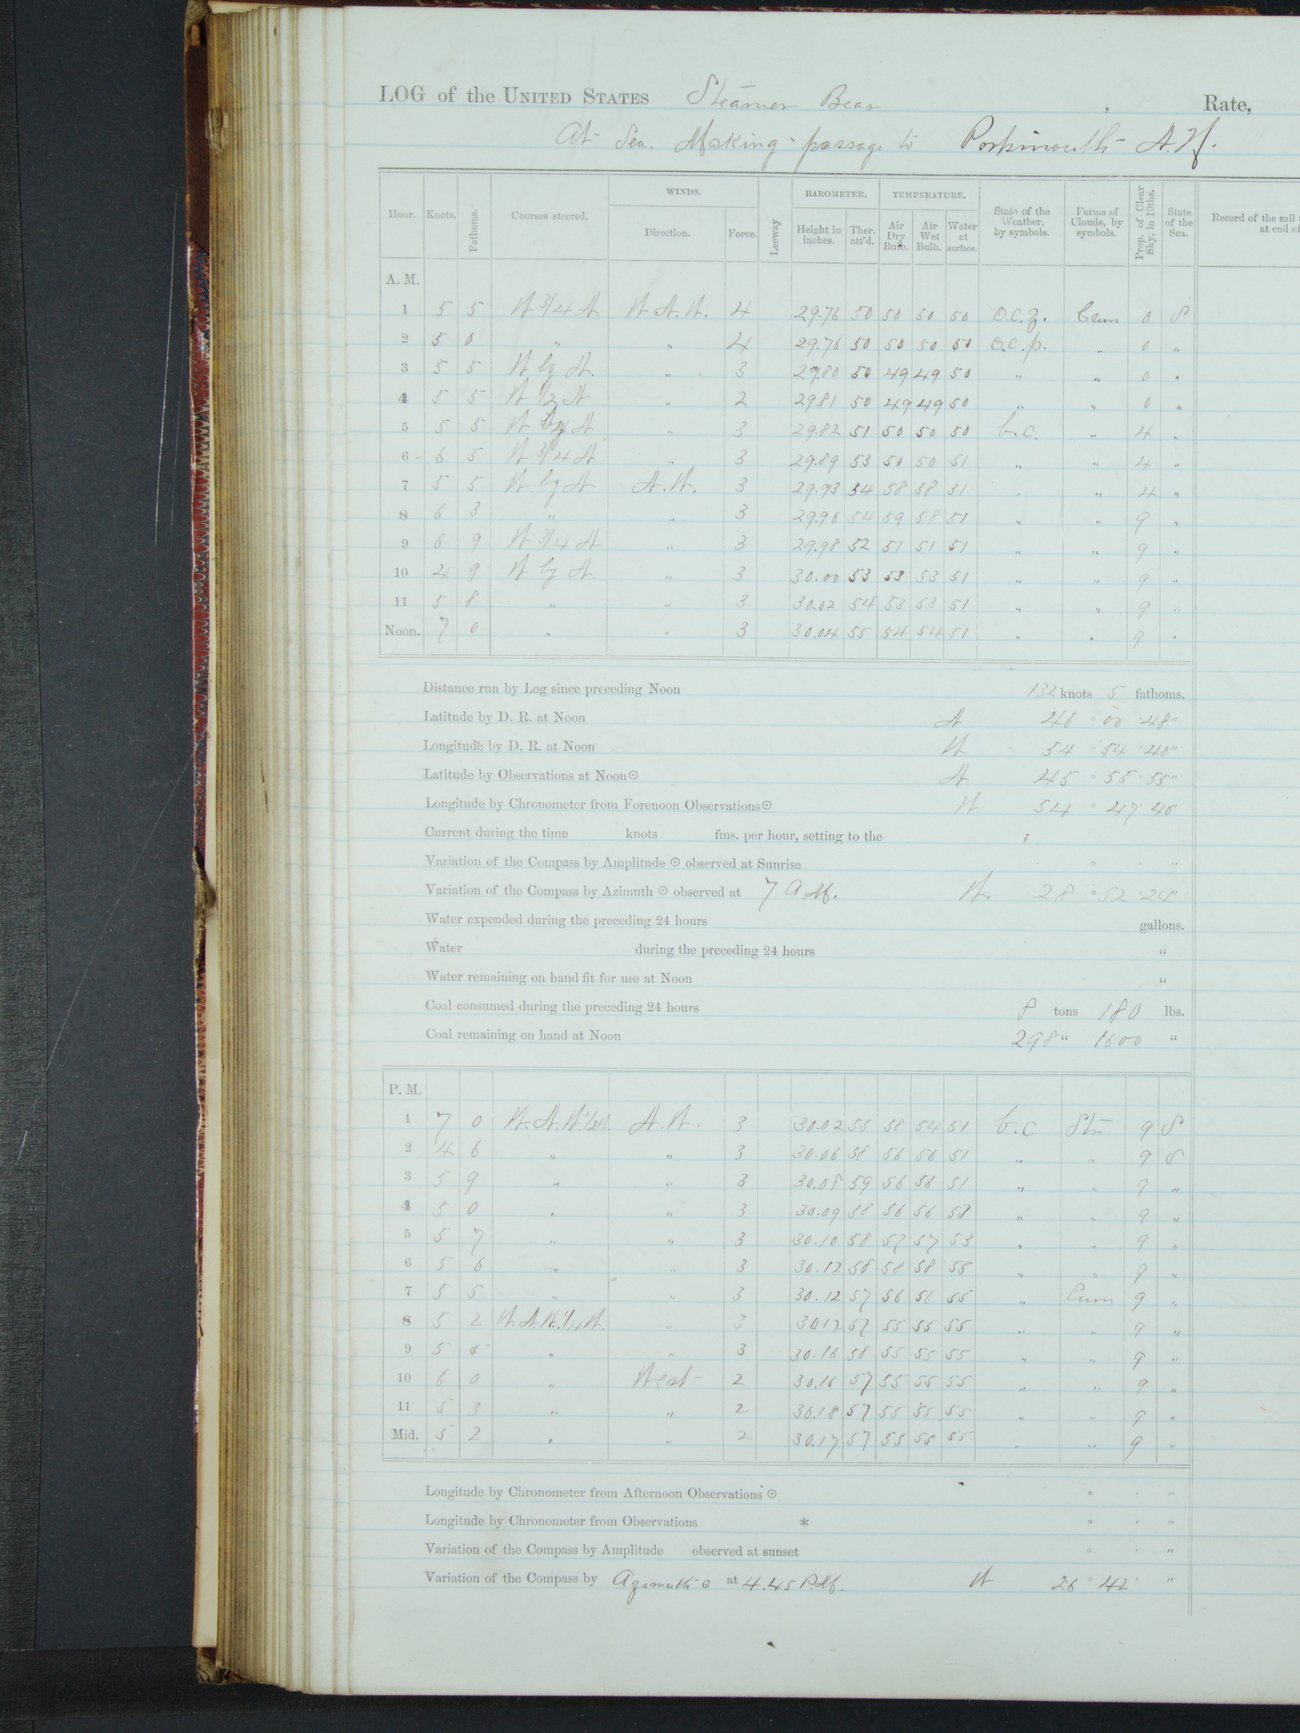 LOG of the UNITED STATES Steamer Bear , Rate,
At Sea. Making passage to Portsmouth N.H.
Hour. Knots. Fathoms. Courses steered. WINDS. Direction. Force. Leeway BAROMETER. Height in inches. Ther. att'd. TEMPERATURE. Air Dry Bulb. Air Wet Bulb. Water at surface. State of the Weather, by symbols. Forms of Clouds, by symbols. Prop. of Clear Sky, in 10ths. State of the Sea. Record of the sail at end of
A. M.
1 5 5 W 3/4 N W.N.W. 4 29.76 50 50 50 50 o.c.z. Cum 0 S
2 5 0 " " 4 29.76 50 50 50 50 o.c.p. " 0 "
3 5 5 W by N. " 3 29.80 50 49 49 50 " " 0 "
4 5 5 W 1/2 N " 2 29.81 50 49 49 50 " " 0 "
5 5 5 W N " 3 29.82 51 50 50 50 b.c. " 4 "
6 6 5 W 3/4 N " 3 29.89 53 50 50 51 " " 4 "
7 5 5 W by N N.W. 3 29.93 54 58 58 51 " " 4 "
8 6 3 " " 3 29.96 54 59 58 51 " " 9 "
9 6 9 W 3/4 N " 3 29.98 52 51 51 51 " " 9 "
10 4 9 W by N. " 3 30.00 53 53 53 51 " " 9 "
11 5 8 " " 3 30.02 54 53 53 51 " " 9 "
Noon. 7 0 " " 3 30.04 55 54 54 51 " " 9 "
Distance run by Log since preceding Noon 132 knots 5 fathoms.
Latitude by D. R. at Noon N 46 ° 00 ' 48 "
Longitude by D. R. at Noon W 54 ° 54 ' 40 "
Latitude by Observations at Noon ⊙ N 45 ° 55 ' 55 "
Longitude by Chronometer from Forenoon Observations ⊙ W 54 ° 47 ' 40 "
Current during the time knots fms. per hour, setting to the ;
Variation of the Compass by Amplitude ⊙ observed at Sunrise ° ' "
Variation of the Compass by Azimuth ⊙ observed at 7 A.M. W. 28 ° 52 ' 24 "
Water expended during the preceding 24 hours gallons.
Water during the preceding 24 hours "
Water remaining on hand fit for use at Noon "
Coal consumed during the preceding 24 hours 8 tons 180 lbs.
Coal remaining on hand at Noon 298 " 1600 "
P. M.
1 7 0 W.N.W. 1/2 W N.W. 3 30.02 55 58 54 51 b.c. Str 9 S
2 4 6 " " 3 30.06 58 56 56 51 " " 9 S
3 5 9 " " 3 30.08 59 56 56 51 " " 9 "
4 5 0 " " 3 30.09 58 56 56 " " 9 "
5 5 7 " " 3 30.10 58 57 57 53 " " 9 "
6 5 6 " " 3 30.12 58 58 58 55 " " 9 "
7 5 5 " " 3 30.12 57 56 56 55 " Cum 9 "
8 5 2 W.N.W. 1/4 W. " 3 30.12 57 55 55 55 " " 9 "
9 5 " " 3 30.16 58 55 55 55 " " 9 "
10 6 0 " West 2 30.16 57 55 55 55 " " 9 "
11 5 3 " " 2 30.18 57 55 55 55 " " 9 "
Mid. 5 2 " " 2 30.17 57 55 55 55 " " 9 "
Longitude by Chronometer from Afternoon Observations ⊙ ° ' "
Longitude by Chronometer from Observations * ° ' "
Variation of the Compass by Amplitude observed at sunset ° ' "
Variation of the Compass by Azimuth ⊙ at 4.45 P.M. W 26 ° 42 ' "